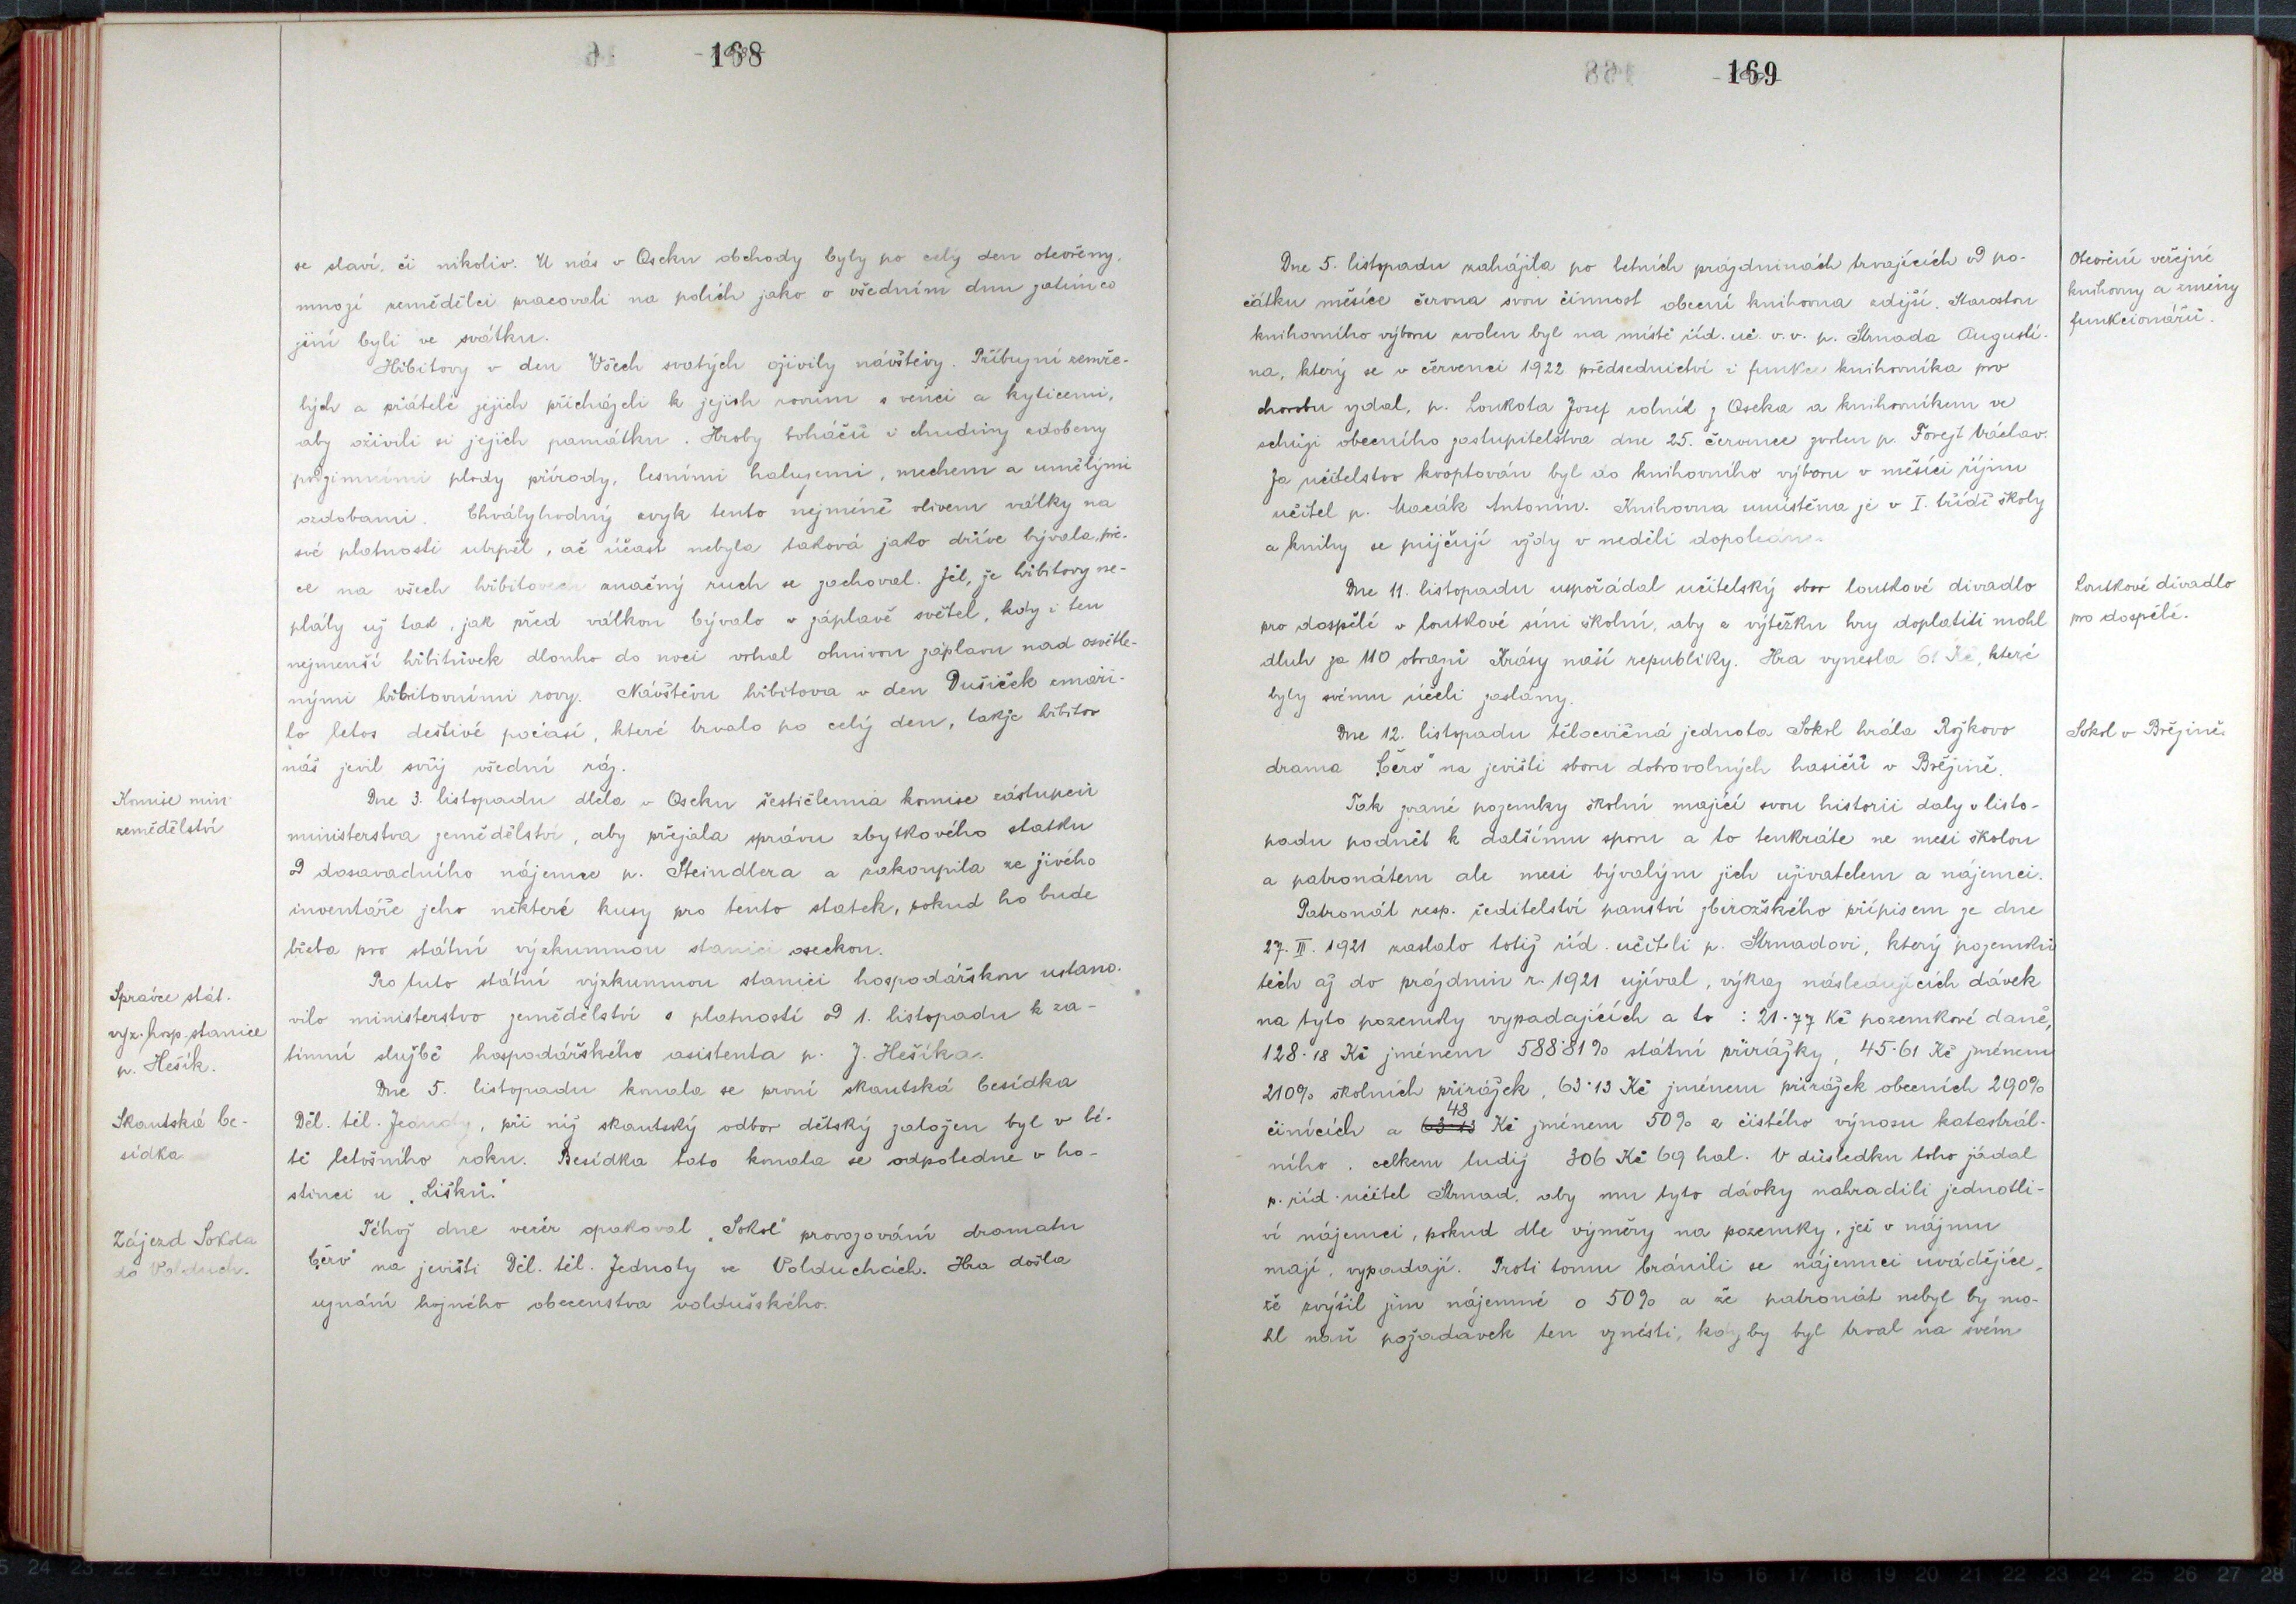 168
se slaví, či nikoliv. U nás v Oseku obchody byly po celý den otevřeny,
mnozí zemědělci pracovali na polích jako o všedním dnu zatím co
jiní byli ve svátku.
Hřbitovy v den Všech svatých oživily návštěvy. Příbuzní zemře-
lých a přátelé jejich přicházeli k jejich rovům s věnci a kyticemi,
aby oživili si jejich památku. Hroby boháčů i chudiny zdobeny
podzimními plody přírody, lesními haluzemi, mechem a umělými
ozdobami. Chvályhodný zvyk tento nejméně vlivem války na
své platnosti utrpěl, ač účast nebyla taková jako dříve bývala, pře-
ce na všech hřbitovech značný ruch se zachoval. Jel, že hřbitovy ne-
plály už tak, jak před válkou bývalo v záplavě světel, kdy i ten
nejmenší hřbitůvek dlouho do noci vrhal ohnivou záplavu nad osvětle-
nými hřbitovními rovy. Návštěvu hřbitova v den Dušiček zmaři-
lo letos deštivé počasí, které trvalo po celý den, takže hřbitov
náš jevil svůj všední ráz.
Komise min
zemědělství
Dne 3. listopadu dlela v Oseku šestičlenná komise zástupců
ministerstva zemědělství, aby přejala správu zbytkového statku
od dosavadního nájemce p. Steindlera a zakoupila ze živého
inventáře jeho některé kusy pro tento statek, pokud ho bude
třeba pro státní výzkumnou stanici oseckou.
Správce stát.
výz. hosp. stanice
p. Hešík.
Pro tuto státní výzkumnou stanici hospodářskou ustano-
vilo ministerstvo zemědělství s platností od 1. listopadu k za-
tímní službě hospodářského asistenta p. J. Hešíka.
Skautská be-
sídka
Dne 5. listopadu konala se první skautská besídka
Děl. těl. Jednoty, při níž skautský odbor dětský založen byl v lé-
tě letošního roku. Besídka tato konala se odpoledne v ho-
stinci u „Lišků."
Zájezd Sokola
do Volduch.
Téhož dne večer opakoval „Sokol" provozování dramatu
„Červ" na jevišti Děl. těl. Jednoty ve Volduchách. Hra došla
uznání hojného obecenstva voldušského.
169
Otevření veřejné
knihovny a změny
funkcionářů.
Dne 5. listopadu zahájila po letních prázdninách trvajících od po-
čátku měsíce června svou činnost obecní knihovna zdejší. Starostou
knihovního výboru zvolen byl na místě říd. uč. v. v. p. Strnada Augusti-
na, který se v červenci 1922 předsednictví i funkce knihovníka pro
chorobu vzdal, p. Loukota Josef rolník z Oseka a knihovníkem ve
schůzi obecního zastupitelstva dne 25. července zvolen p. Forejt Václav.
Za učitelstvo kooptován byl do knihovního výboru v měsíci říjnu
učitel p. Macák Antonín. Knihovna umístěna je v I. třídě školy
a knihy se půjčují vždy v neděli dopoledne.
Loutkové divadlo
pro dospělé.
Dne 11. listopadu uspořádal učitelský sbor loutkové divadlo
pro dospělé v loutkové síni školní, aby z výtěžku hry doplatiti mohl
dluh za 110 obrazů Krásy naší republiky. Hra vynesla 61 Kč, které
byly svému účeli zaslány.
Sokol v Březině.
Dne 12. listopadu tělocvičná jednota Sokol hrála Rožkovo
drama „Červ" na jevišti sboru dobrovolných hasičů v Březině.
Tak zvané pozemky školní mající svou historii daly v listo-
padu podnět k dalšímu sporu a to tenkráte ne mezi školou
a patronátem ale mezi bývalým jich uživatelem a nájemci.
Patronát resp. ředitelství panství zbirožského přípisem ze dne
27. III. 1921 zaslalo totiž říd. učiteli p. Strnadovi, který pozemků
těch až do prázdnin r. 1921 užíval, výkaz následujících dávek
na tyto pozemky vypadajících a to: 21·77 Kč pozemkové daně,
128·18 Kč jménem 588·81% státní přirážky, 45·61 Kč jménem
210% školních přirážek, 63·13 Kč jménem přirážek obecních 290%
48
činících a 63·13 Kč jménem 50% z čistého výnosu katastrál-
ního. celkem tudíž 306 Kč 69 hal. V důsledku toho žádal
p. říd. učitel Strnad, aby mu tyto dávky nahradili jednotli-
ví nájemci, pokud dle výměry na pozemky, jež v nájmu
mají, vypadají. Proti tomu bránili se nájemci uvádějíce,
že zvýšil jim nájemné o 50% a že patronát nebyl by mo-
hl naň požadavek ten vznésti, kdyby byl trval na svém